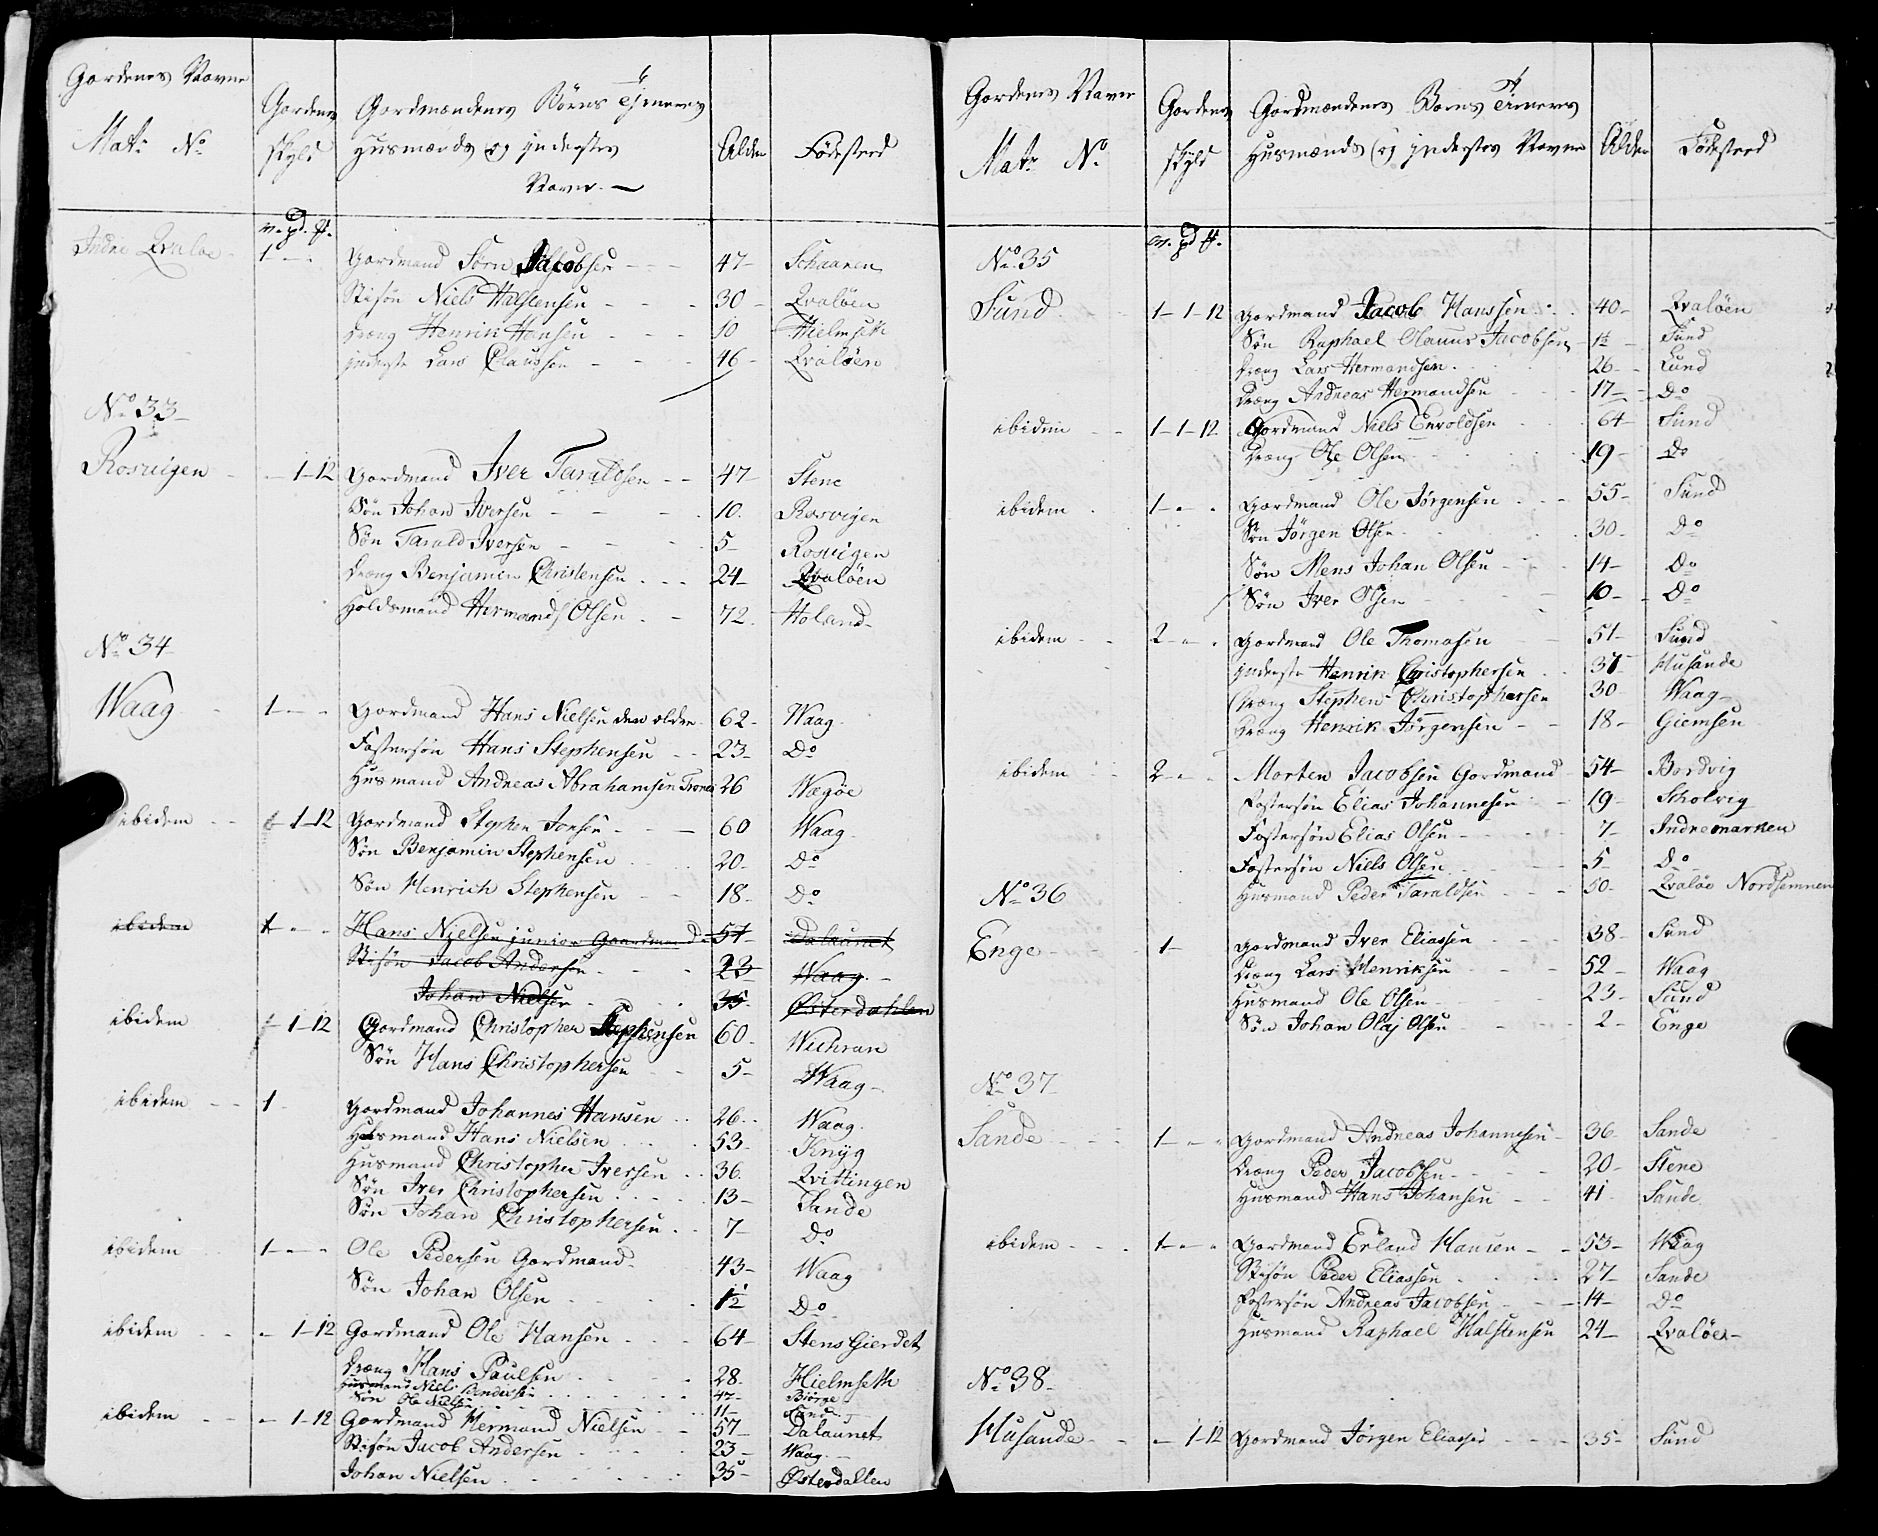 Gordenes Navne
Mat. No
Gordens
skyld
Gordmændenes Børns Tjeneres
Husmænds og jndersters
Navne.
Alder
Fødested
v. pd. #.
Indre Qvaløe 1 Gordmand Sørn Jacobsen 47 Schaanen
Stifsøn Niels Halstensen 30 Qvaløen
Dræng Henrik Hansen 10 Hielmseth
jnderste Lars Claussen 46 Qvaløen
No. 33
Rosvigen 1-12 Gordmand Iver Taraldsen 47 Stene
Søn Johan Iversen 10. Rosvigen
Søn Tarald Iversen 5 Rosvigen
Dræng Benjamin Christensen 24 Qvaløen
Holdsmand Hermand Olsen 72. Holand
No. 34
Waag 1 Gordmand Hans Nielsen den older 62 Waag
Fostersøn Hans Stephensen 23 Do
Husmand Andreas Abrahamsen Trones 26 Wægøe
ibidem 1-12 Gordmand Stephen Jonsen 60 Waag
Søn Benjamin Stephensen 20. Do
Søn Henrich Stephensen 18. Do
ibidem 1 Hans Nielsen junior Gaardmand 51 Dalaunet
Stifsøn Jacob Andersen 23 Waag
Johan Nielsen 35. Østerdahlen
ibidem 1-12 Gordmand Christopher Stephensen 60 Wichran
Søn Hans Christophersen 5 Waag
ibidem 1 Gordmand Johannes Hansen 26 Waag
Husmand Hans Nielsen 53 Knÿg
Husmand Christopher Iversen 36 Qvittingen
Søn Iver Christophersen 13 Sande
Søn Johan Christophersen 7 Do
ibidem 1 Ole Pedersen Gordmand 43 Waag
Søn Johan Olsen 1½ Do
ibidem 1-12 Gordmand Ole Hansen 64 Stens Gierdet
Dræng Hans Paulsen 28. Hielmseth
Husmand Niels Andersen 47 Biørge
Søn Ole Nielsen 11 Sand
ibidem 1-12 Gordmand Hermand Nielsen 57 Dalaunet
Stifsøn Jacob Andersen 23 Waag
Johan Nielsen 35 Østerdallen
Gordenes Navne
Mat. No.
Gordens
skyld
Gordmændenes Borns Tieneres
Husmænds og jndersters Navne
Alder
Fødested
v. pd #.
No. 35
Sund 1-1-12 Gordmand Jacob Hanssen 40 Qvaløen
Søn Raphael Olauus Jacobsen 1½ Sund
Dræng Lars Hermandsen 26 Lund
Dræng Andreas Hermandsen 17 Do
ibidem 1-1-12 Gordmand Niels Envoldsen 64 Sund
Dræng Ole Olsen 19 Do
ibidem 1 Gordmand Ole Jørgensen 55 Sund
Søn Jørgen Olsen 30 Do
Søn Mens Johan Olsen 14 Do
Søn Iver Olsen 10 Do
ibidem 2 Gordmand Ole Thomasen 51 Sund
jnderste Henrik Christophersen 37 Husande
Dræng Stephen Christophersen 30 Waag
Dræng Henrik Jørgensen 18 Giemsen
ibidem 2 Morten Jacobsen Gordmand 54 Bordvig
Fostersøn Elias Johannesen 19 Scholvig
Fostersøn Elias Olsen 7 Indremarken
Fostersøn Niels Olsen 5 Do
Husmand Peder Taraldsen 50 Qvaløe Nordsemnen
No. 36
Enge 1 Gordmand Iver Eliassen 38 Sund
Dræng Lars Henriksen 52 Waag
Husmand Ole Olsen 23 Sund
Søn Johan Olaj Olsen 2 Enge
No. 37
Sande 1 Gordmand Andreas Johannesen 36 Sande
Dræng Peder Jacobsen 20 Stene
Husmand Hans Johansen 41 Sande
ibidem 1 Gordmand Erland Hansen 53 Waag
Stifsøn Peder Eliassen 27 Sande
Fostersøn Andreas Jacobsen 14 Do
Husmand Raphael Halstensen 24 Qvaløen
No. 38
Husande 1-12 Gordmand Jørgen Eliassen 35 Sund